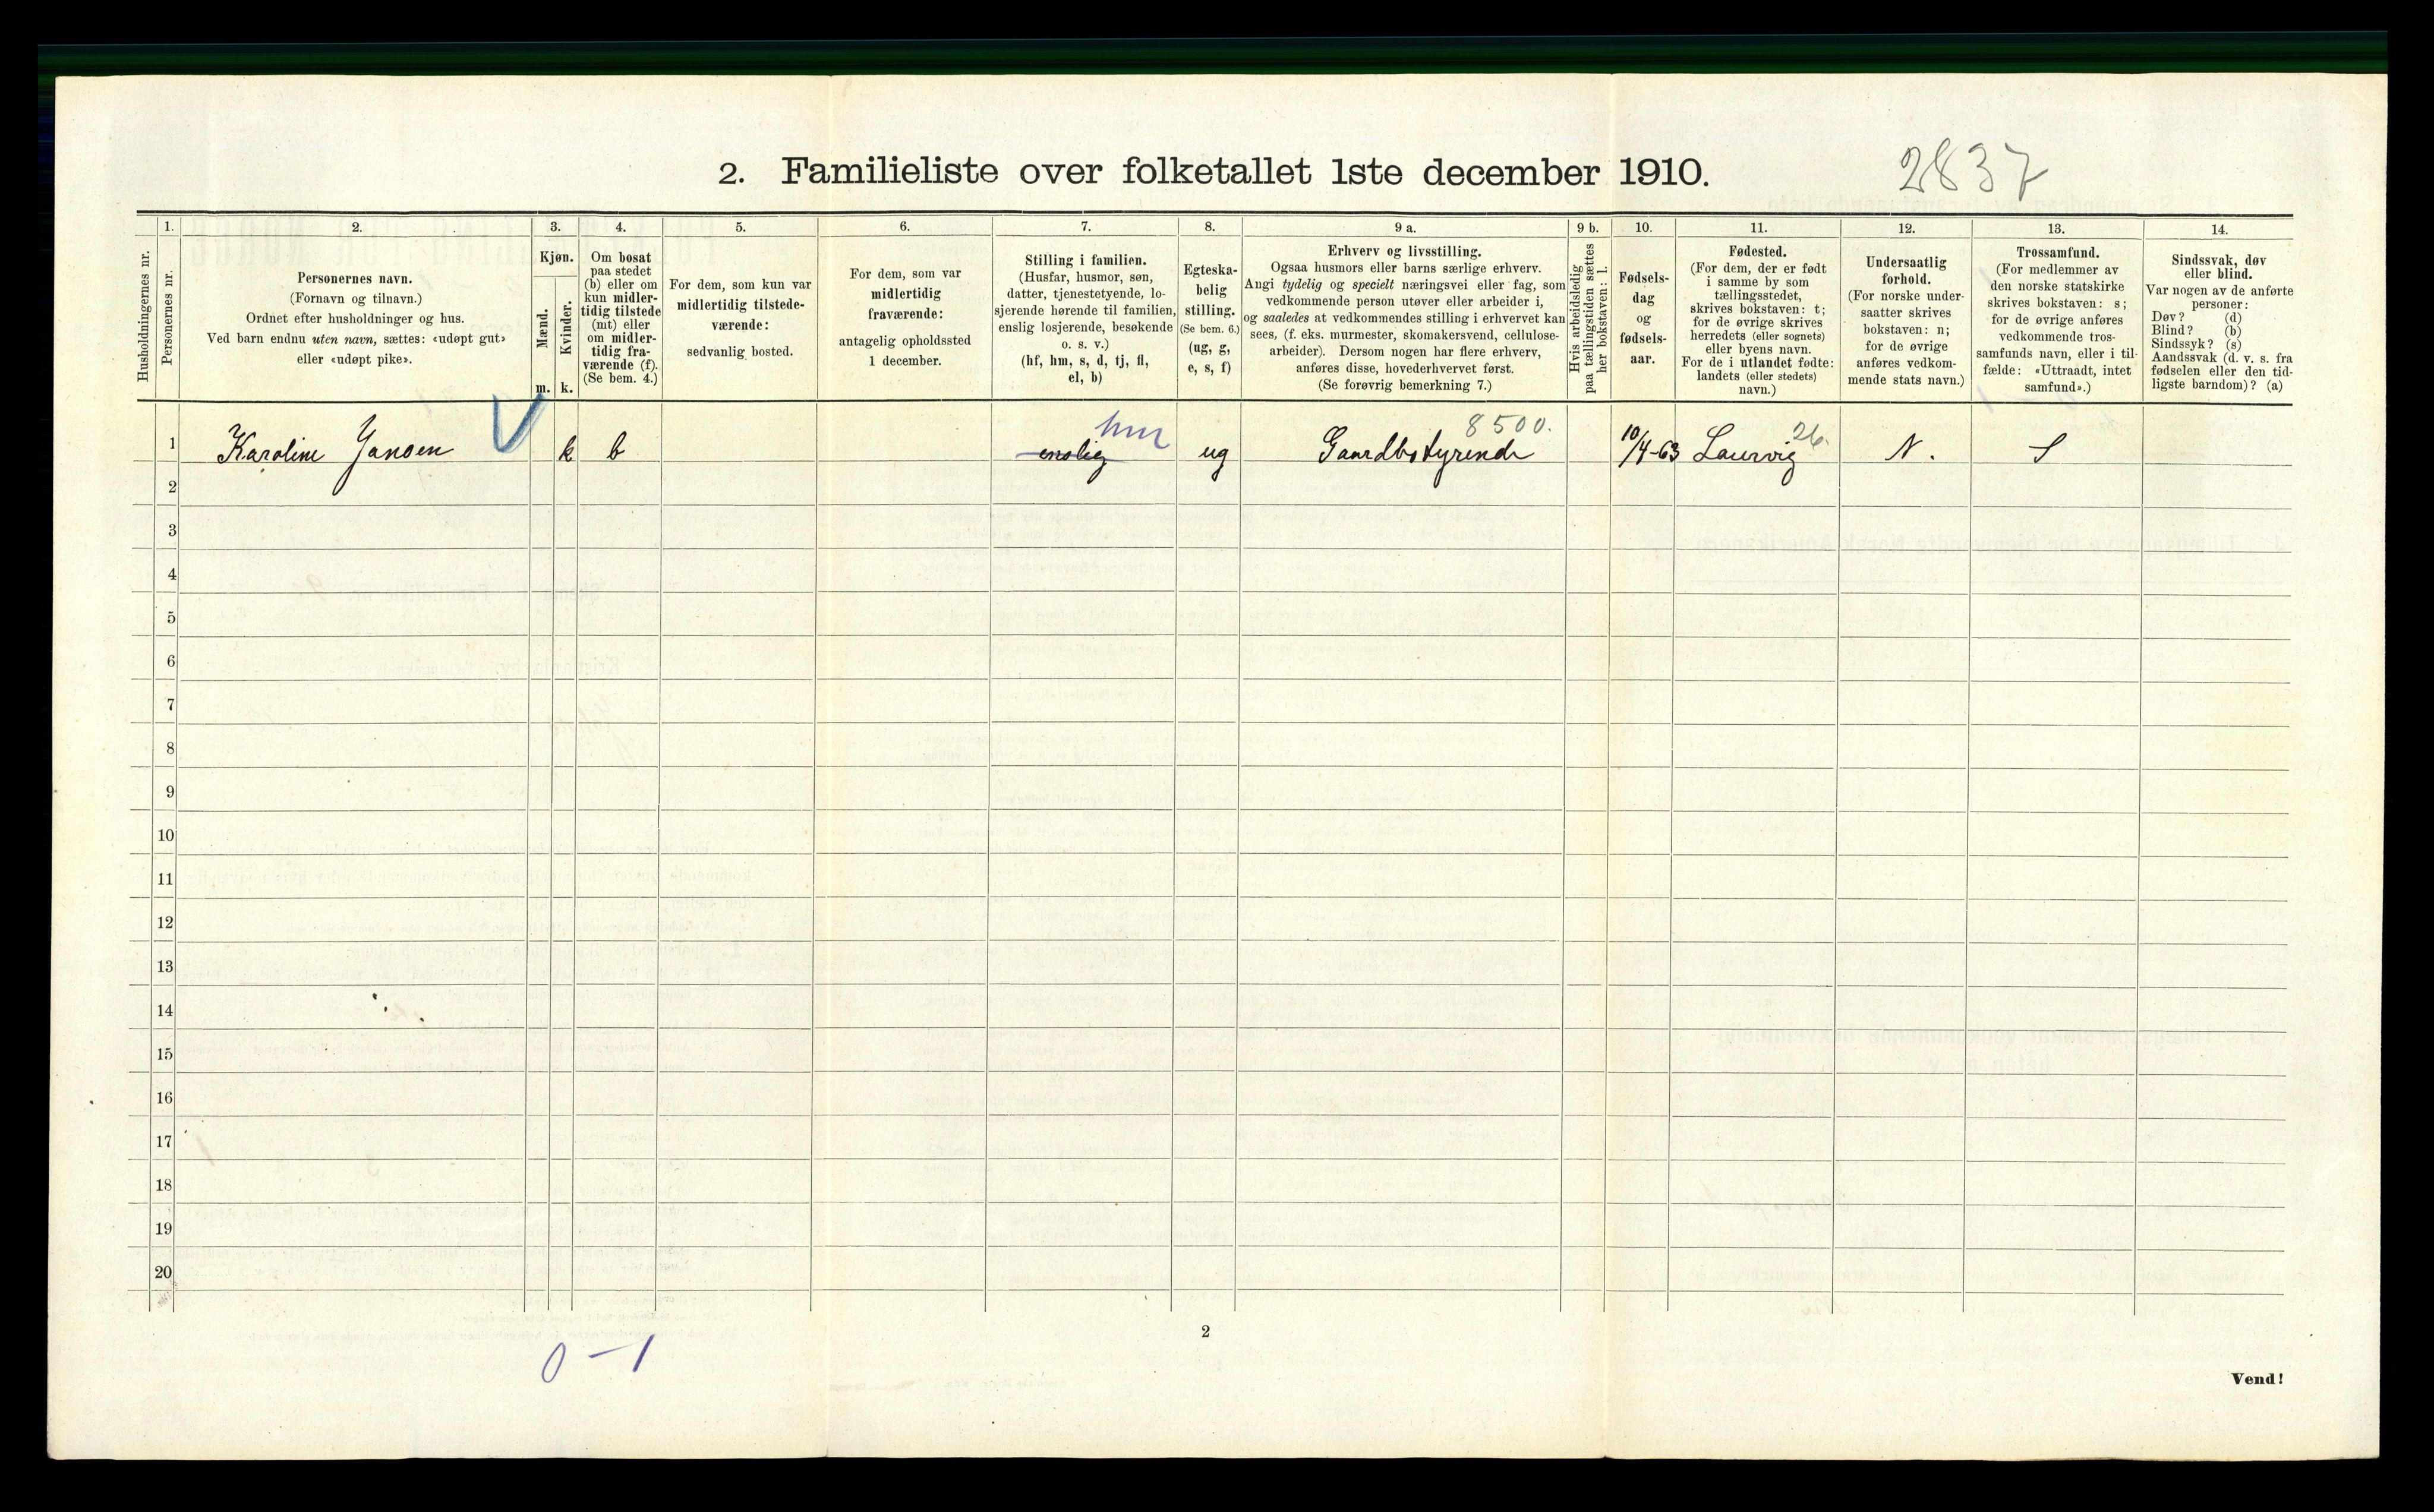 2. Familieliste over folketallet 1ste december 1910.
2837
Husholdningernes nr.
1.
Personernes nr.
2.
Personernes navn.
(Fornavn og tilnavn.)
Ordnet efter husholdninger og hus.
Ved barn endnu uten navn, sættes: «udøpt gut»
eller «udøpt pike».
3.
Kjøn.
Mænd.
m.
Kvinder.
k.
4.
Om bosat
paa stedet
(b) eller om
kun midler-
tidig tilstede
(mt) eller
om midler-
tidig fra-
værende (f).
(Se bem. 4.)
5.
For dem, som kun var
midlertidig tilstede-
værende:
sedvanlig bosted.
6.
For dem, som var
midlertidig
fraværende:
antagelig opholdssted
1 december.
7.
Stilling i familien.
(Husfar, husmor, søn,
datter, tjenestetyende, lo-
sjerende hørende til familien,
enslig losjerende, besøkende
o. s. v.)
(hf, hm, s, d, tj, fl,
el, b)
8.
Egteska-
belig
stilling.
(Se bem. 6.)
(ug, g,
e, s, f)
9 a.
Erhverv og livsstilling.
Ogsaa husmors eller barns særlige erhverv.
Angi tydelig og specielt næringsvei eller fag, som
vedkommende person utøver eller arbeider i,
og saaledes at vedkommendes stilling i erhvervet kan
sees, (f. eks. murmester, skomakersvend, cellulose-
arbeider). Dersom nogen har flere erhverv,
anføres disse, hovederhvervet først.
(Se forøvrig bemerkning 7.)
9 b.
Hvis arbeidsledig
paa tællingstiden sættes
her bokstaven: l.
10.
Fødsels-
dag
og
fødsels-
aar.
11.
Fødested.
(For dem, der er født
i samme by som
tællingsstedet,
skrives bokstaven: t;
for de øvrige skrives
herredets (eller sognets)
eller byens navn.
For de i utlandet fødte:
landets (eller stedets)
navn.)
12.
Undersaatlig
forhold.
(For norske under-
saatter skrives
bokstaven: n;
for de øvrige
anføres vedkom-
mende stats navn.)
13.
Trossamfund.
(For medlemmer av
den norske statskirke
skrives bokstaven: s;
for de øvrige anføres
vedkommende tros-
samfunds navn, eller i til-
fælde: «Uttraadt, intet
samfund».)
14.
Sindssvak, døv
eller blind.
Var nogen av de anførte
personer:
Døv? (d)
Blind? (b)
Sindssyk? (s)
Aandssvak (d. v. s. fra
fødselen eller den tid-
ligste barndom)? (a)
hm 8500. 26.
1 Karoline Jansen k b enslig ug Gaardbestyrende 10/4-63 Laurvig N. S
2
3
4
5
6
7
8
9
10
11
12
13
14
15
16
17
18
19
20
0 - 1
2
Vend!